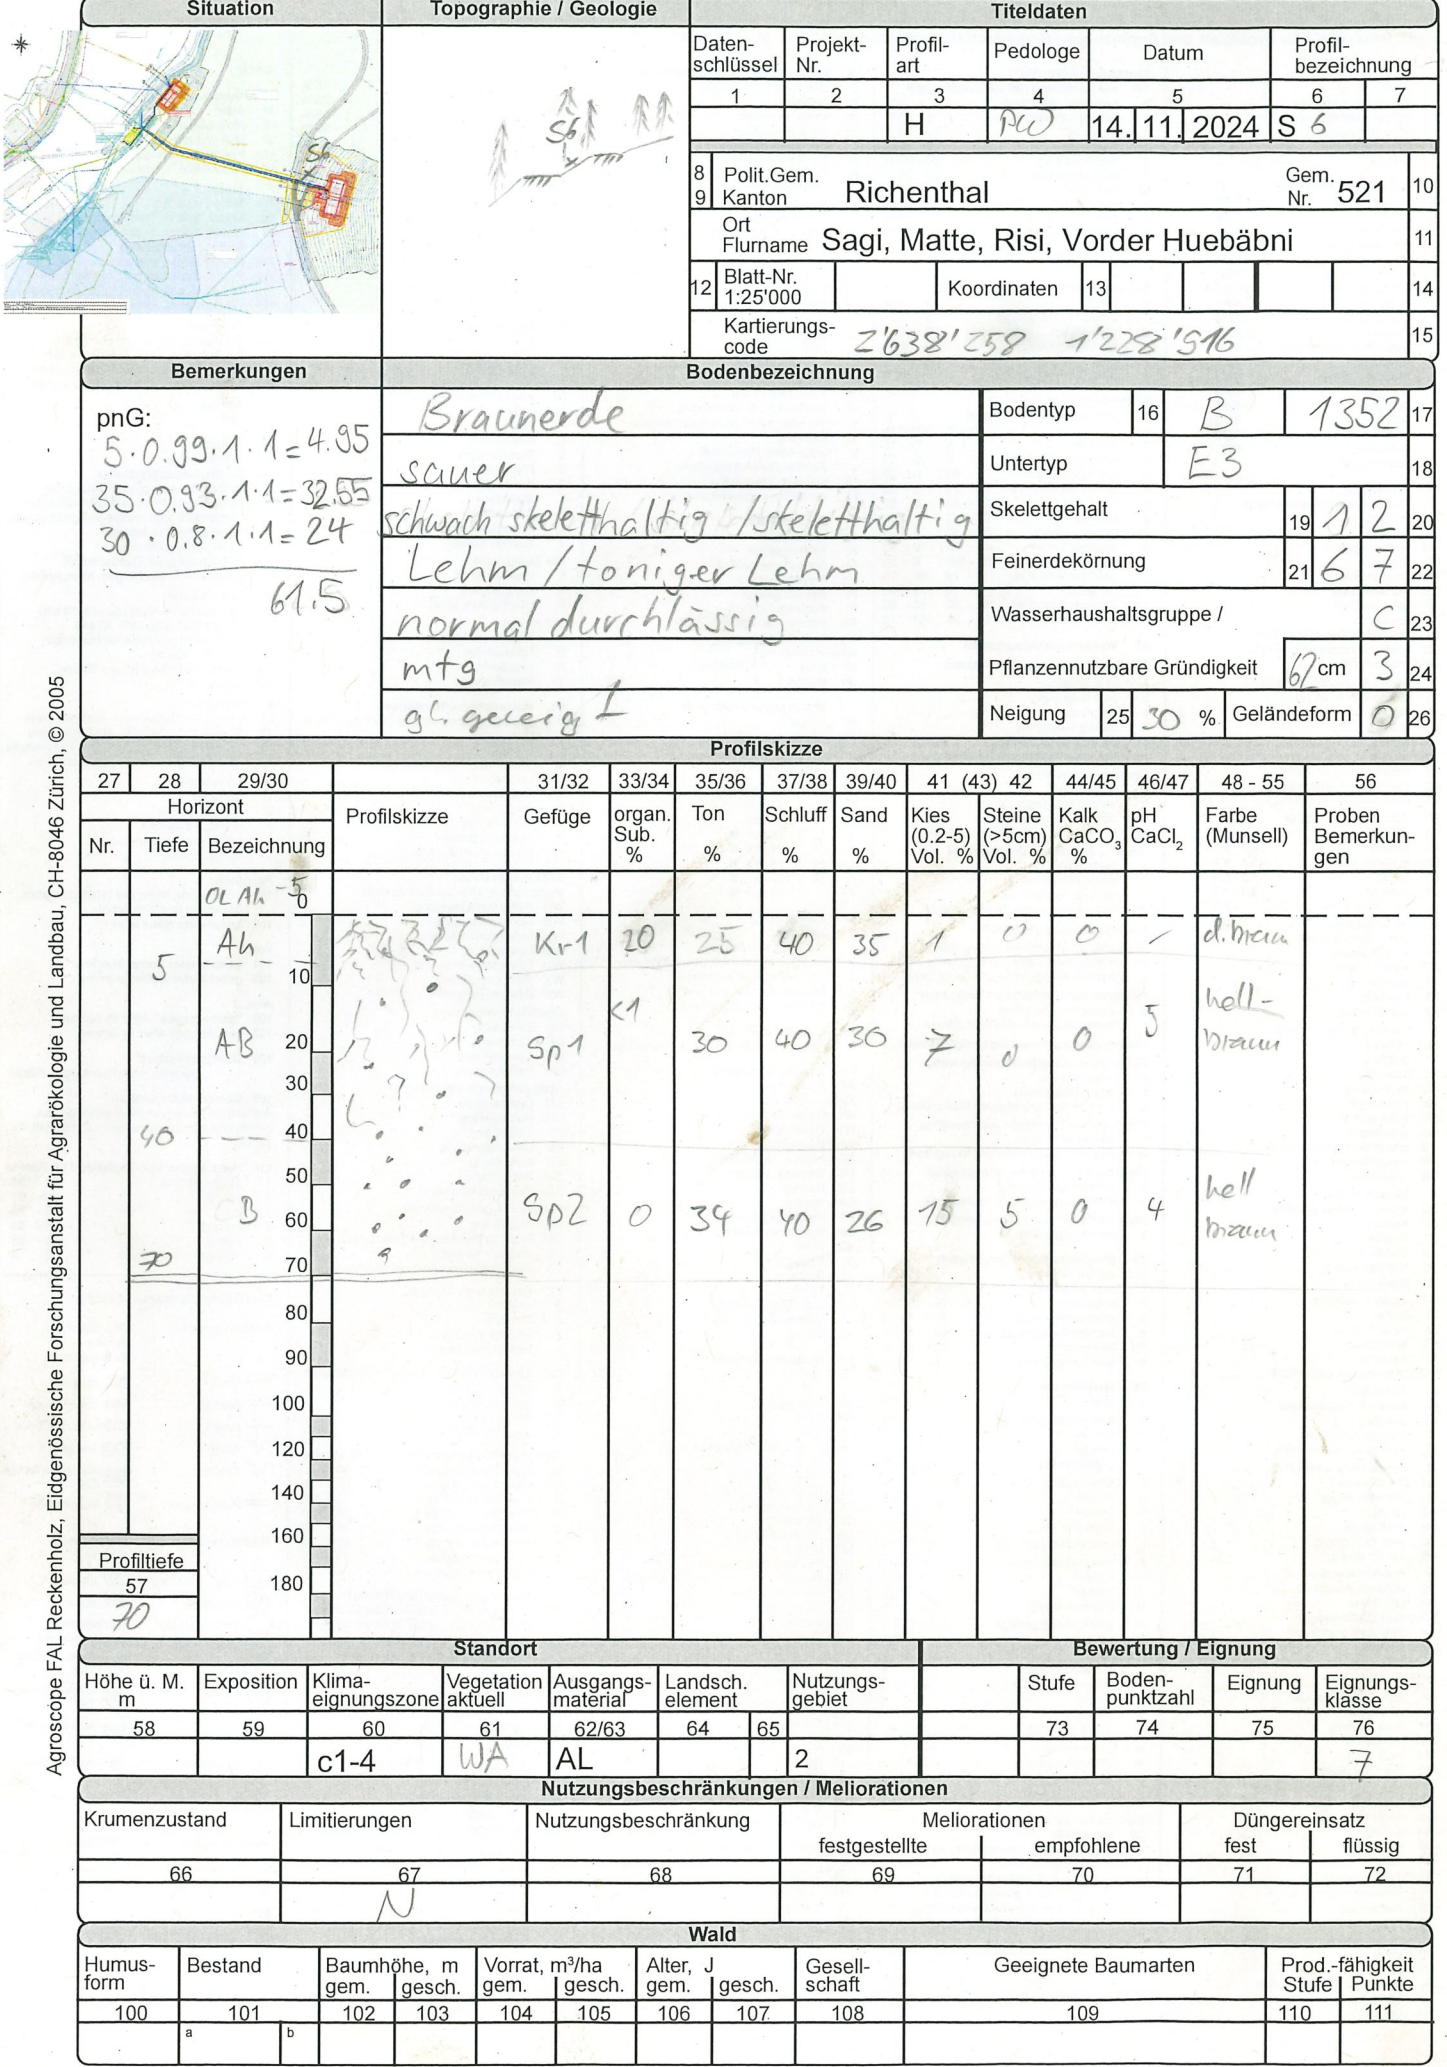 Situation
Topographie / Geologie
Titeldaten
S6
S6
Daten-
schlüssel
Projekt-
Nr.
Profil-
art
Pedologe
Datum
Profil-
bezeichnung
1 2 3 4 5 6 7
H PW 14. 11. 2024 S 6
8 Polit.Gem.
9 Kanton
Richenthal
Gem.
Nr. 521 10
Ort
Flurname Sagi, Matte, Risi, Vorder Huebäbni 11
12 Blatt-Nr.
1:25'000
Koordinaten 13 14
Kartierungs-
code 2'638'258 1'228'516 15
Bemerkungen
pnG:
5·0.99·1·1=4.95
35·0.93·1·1=32.55
30·0.8·1·1=24
61.5
Bodenbezeichnung
Braunerde
sauer
schwach skeletthaltig / skeletthaltig
Lehm / toniger Lehm
normal durchlässig
mtg
Bodentyp 16 B 1352 17
Untertyp E3 18
Skelettgehalt 19 1 2 20
Feinerdekörnung 21 6 7 22
Wasserhaushaltsgruppe / C 23
Pflanzennutzbare Gründigkeit 62 cm 3 24
Neigung 25 30 % Geländeform 0 26
Profilskizze
27 28 29/30 31/32 33/34 35/36 37/38 39/40 41 (43) 42 44/45 46/47 48 - 55 56
Horizont
Nr. Tiefe Bezeichnung
Profilskizze
Gefüge
organ.
Sub.
%
Ton
%
Schluff
%
Sand
%
Kies
(0.2-5)
Vol. %
Steine
(>5cm)
Vol. %
Kalk
CaCO3
%
pH
CaCl2
Farbe
(Munsell)
Proben
Bemerkun-
gen
OL Ah -5
0
Ah Kr1 20 25 40 35 1 0 0 / d.braun
5
10
AB 20 Sp1 <1 30 40 30 7 0 0 5 hell-
braun
30
40 40
50
B 60 Sp2 0 34 40 26 15 5 0 4 hell
braun
70 70
80
90
100
120
140
160
180
Profiltiefe
57
70
Standort
Höhe ü. M.
m
Exposition
Klima-
eignungszone
Vegetation
aktuell
Ausgangs-
material
Landsch.
element
Nutzungs-
gebiet
58 59 60 61 62/63 64 65
c1-4 WA AL 2
Bewertung / Eignung
Stufe
Boden-
punktzahl
Eignung
Eignungs-
klasse
73 74 75 76
7
Nutzungsbeschränkungen / Meliorationen
Krumenzustand Limitierungen Nutzungsbeschränkung Meliorationen Düngereinsatz
festgestellte empfohlene fest flüssig
66 67 68 69 70 71 72
N
Wald
Humus-
form
Bestand
Baumhöhe, m
gem. gesch.
Vorrat, m³/ha
gem. gesch.
Alter, J
gem. gesch.
Gesell-
schaft
Geeignete Baumarten
Prod.-fähigkeit
Stufe Punkte
100 101 102 103 104 105 106 107 108 109 110 111
a b
Agroscope FAL Reckenholz, Eidgenössische Forschungsanstalt für Agrarökologie und Landbau, CH-8046 Zürich, © 2005